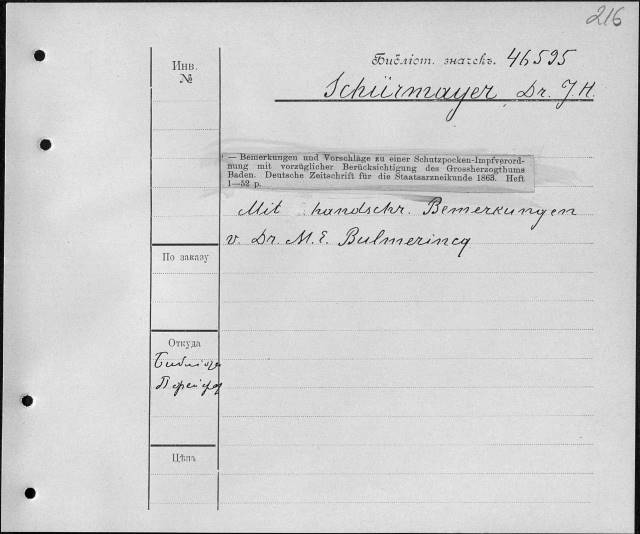 216
Библіот. значекъ. 46595
Инв.
№
Schürmayer, Dr. J. H.
— Bemerkungen und Vorschläge zu einer Schutzpocken-Impfverord-
nung mit vorzüglicher Berücksichtigung des Grossherzogthums
Baden. Deutsche Zeitschrift für die Staatsarzneikunde 1863. Heft
1—52 p.
Mit handschr. Bemerkungen
v. Dr. M. E. Bulmerincq
По заказу
Откуда
Цѣна